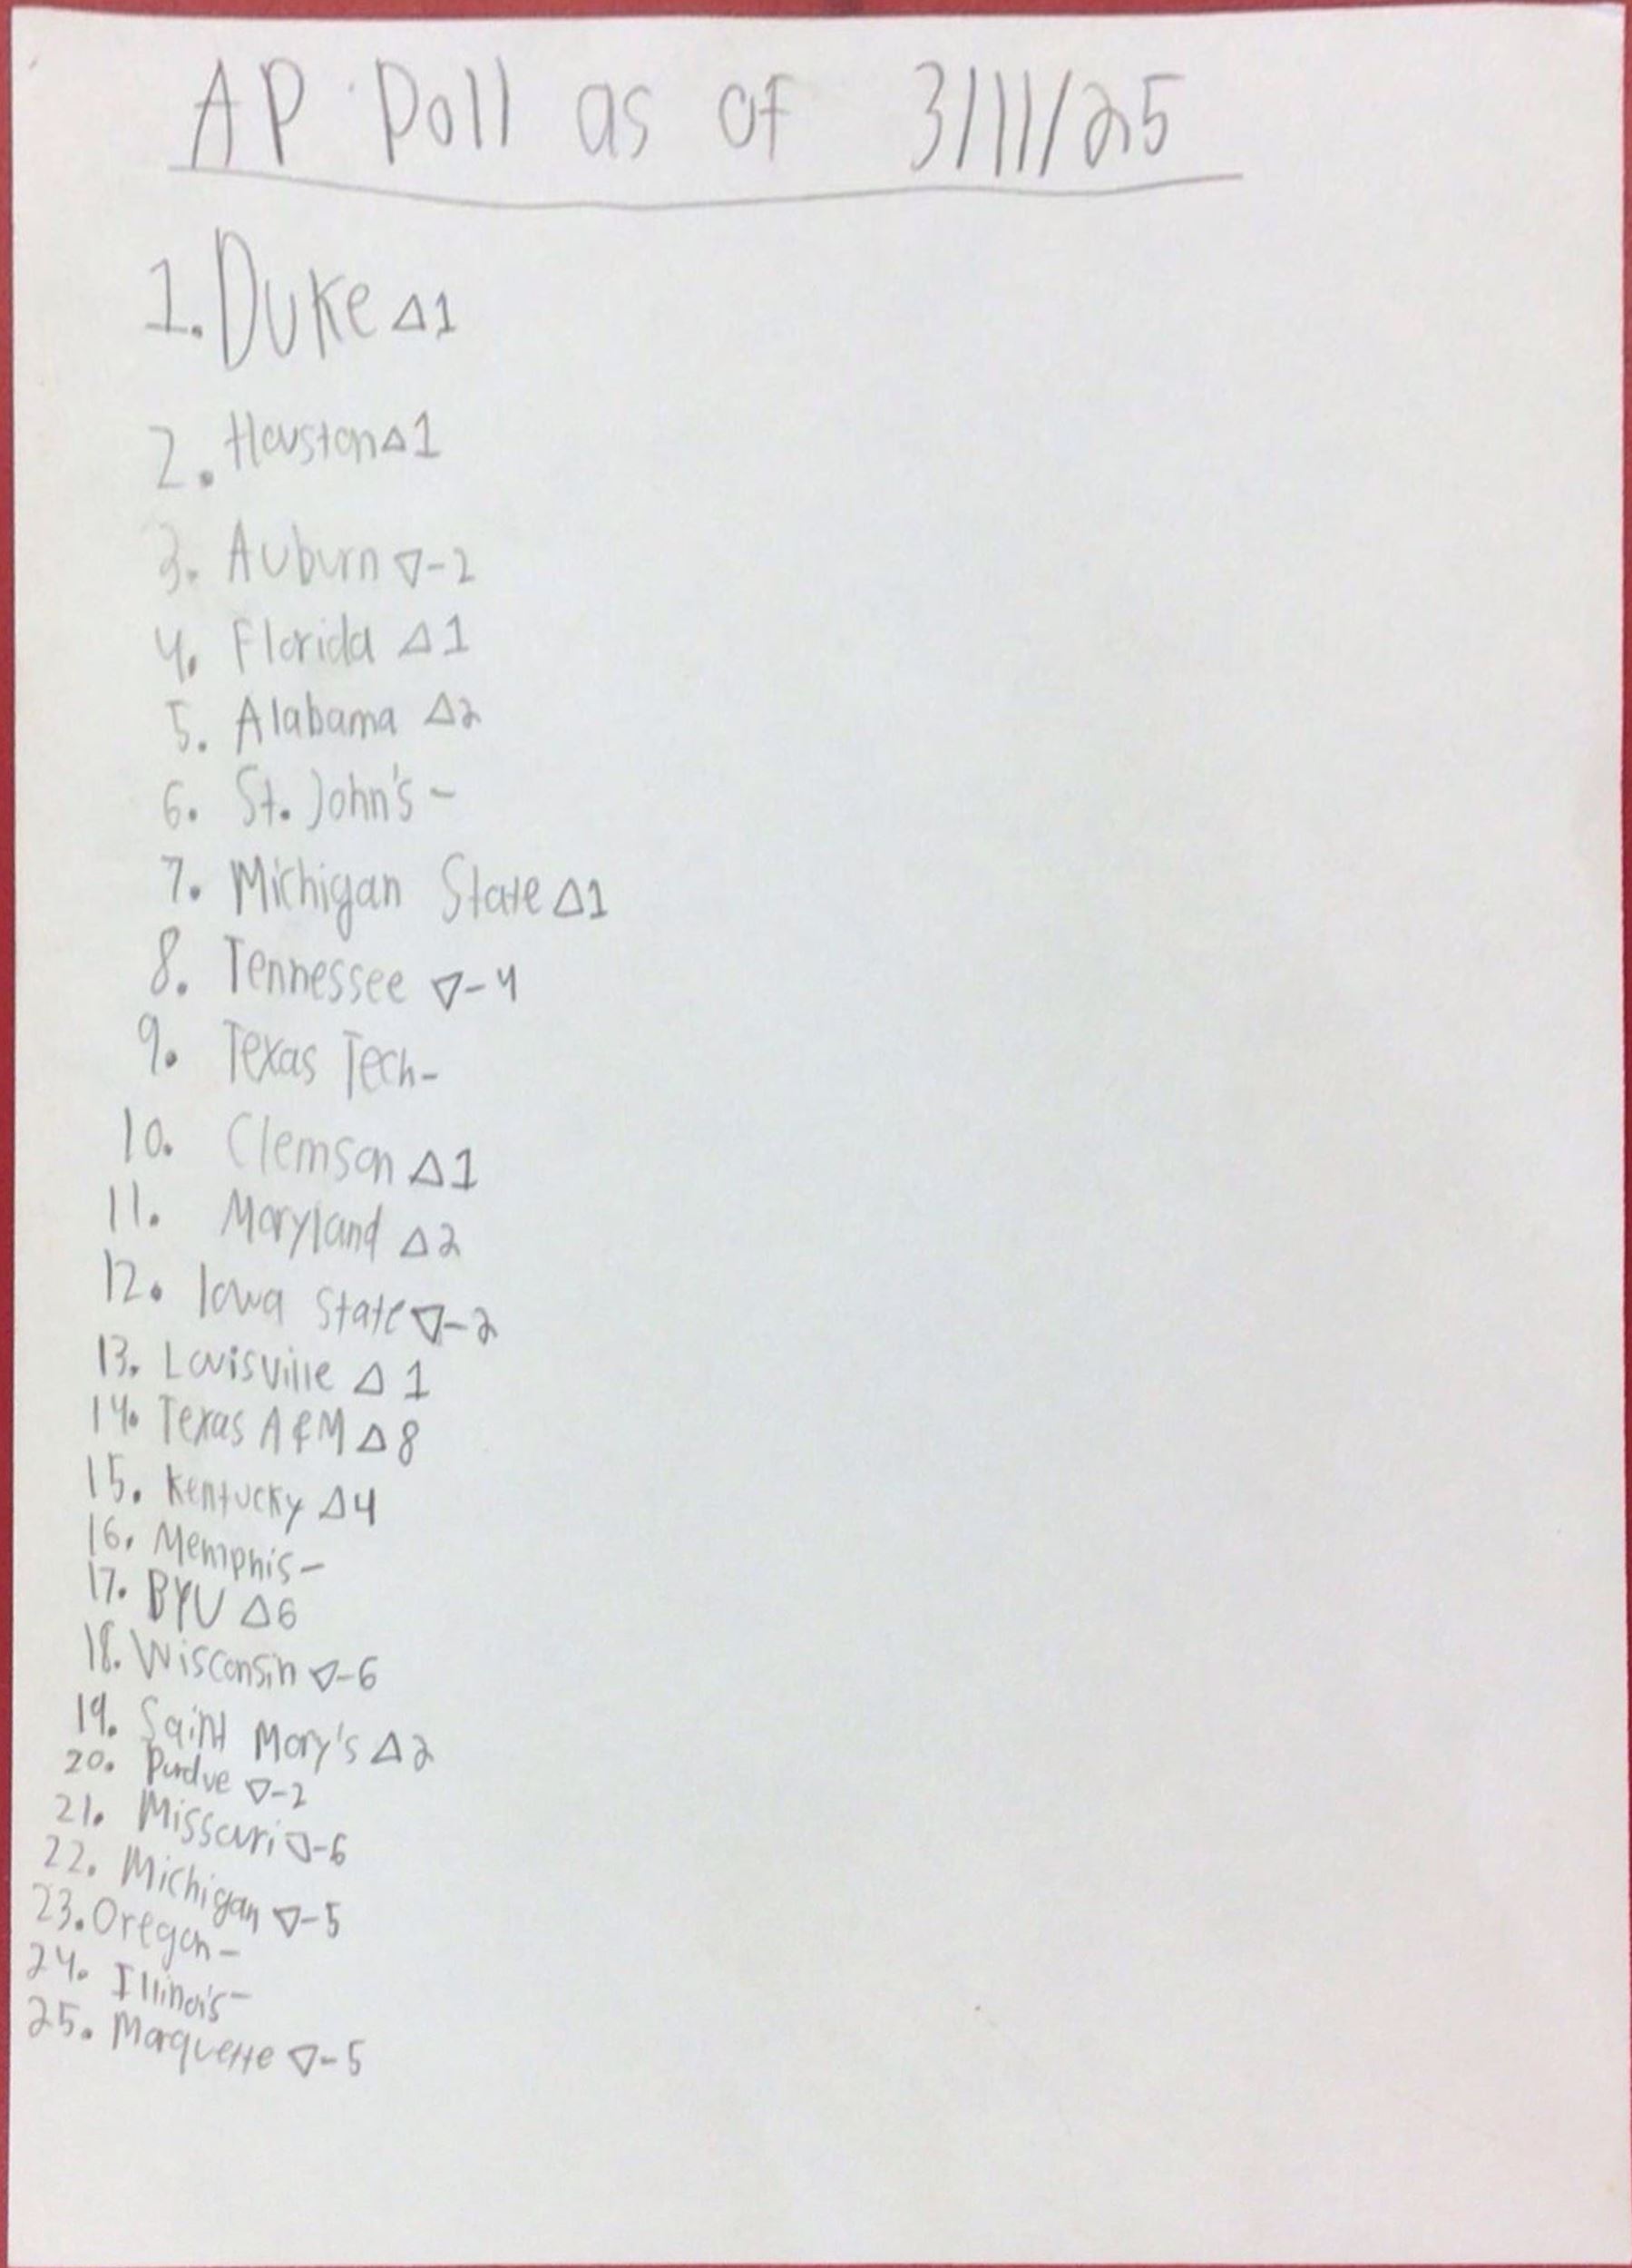 AP Poll as of 3/11/25
1. Duke △1
2. Houston △1
3. Auburn ▽-2
4. Florida △1
5. Alabama △2
6. St. John's -
7. Michigan State △1
8. Tennessee ▽-4
9. Texas Tech -
10. Clemson △1
11. Maryland △2
12. Iowa State ▽-2
13. Louisville △ 1
14. Texas A&M △8
15. Kentucky △4
16. Memphis -
17. BYU △6
18. Wisconsin ▽-6
19. Saint Mary's △2
20. Purdue ▽-2
21. Missouri ▽-6
22. Michigan ▽-5
23. Oregon -
24. Illinois -
25. Marquette ▽-5